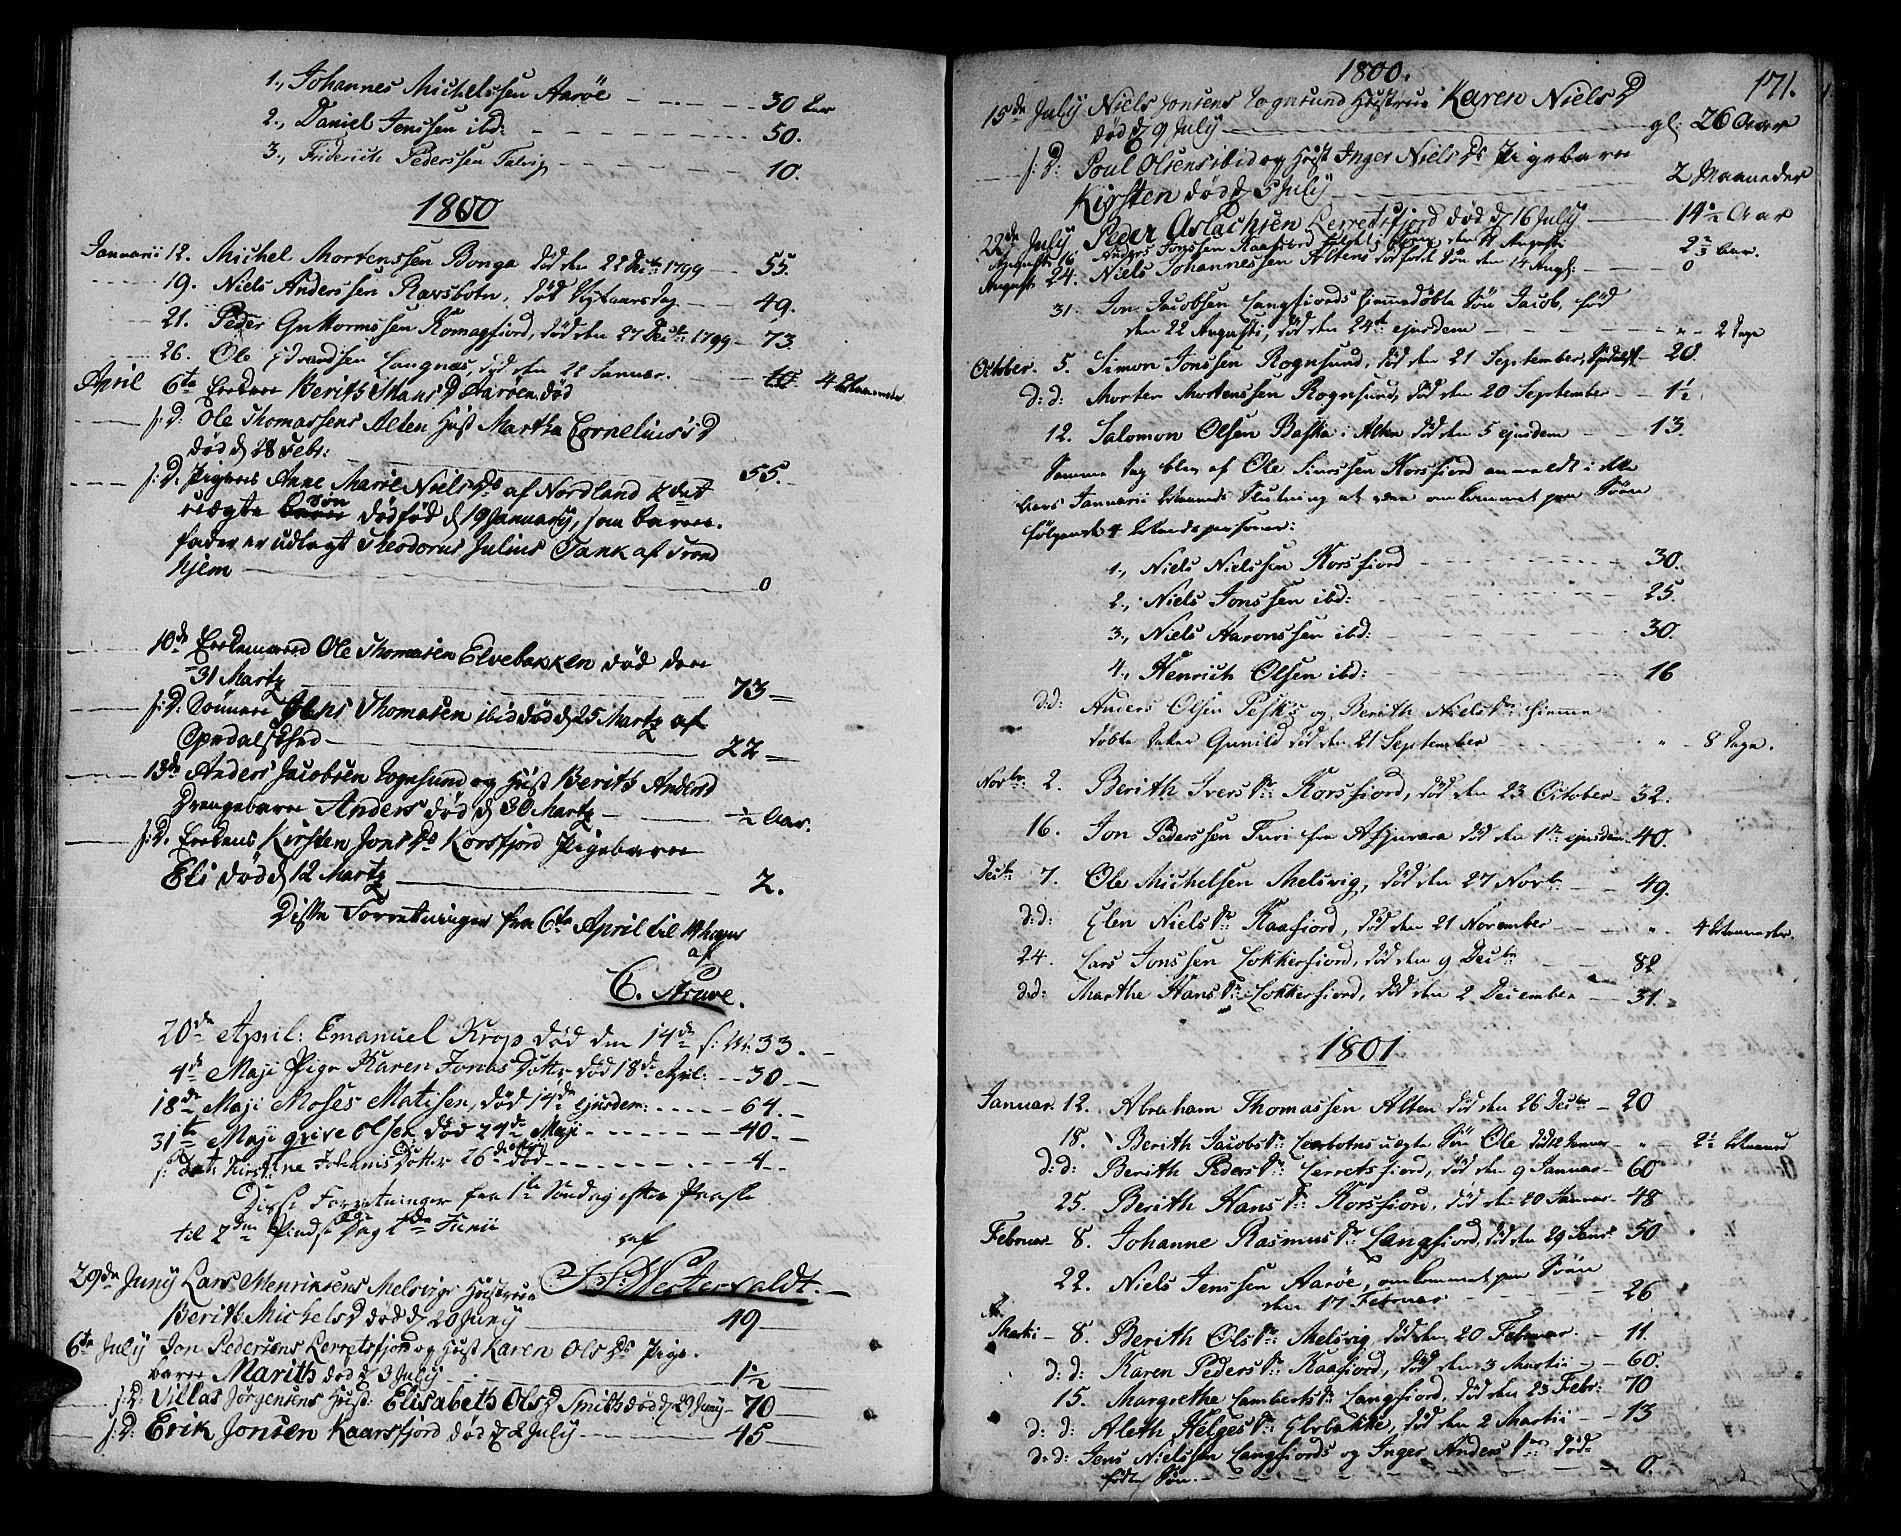 1., Johannes Michelssen Aarøe - - - - 30 Aar
2., Daniel Jenssen ibd: - - - - 50.
3., Friderich Pederssen Talvig - - - - 10.
1800
Januarii 12. Michel Mortenssen Bonga død den 22 Decbr 1799 - 55.
19. Niels Anderssen Ravsbotn, død Nytaarsdag - 49.
21. Peder Guttormssen Komagfiord, død den 27 Decbr: 1799 - 73.
26. Ole Edvardsen Langnæs, død den 28 Januar. - - 4 Maaneder
April 6te Enken Berith Hans D Aarøen død
s: D: Ole Thomassens Alten Hust Martha Cornelius's D
død d 28 Febr: 55.
s: D. Pigens Anne Marie Niels Ds af Nordland &
uægte Søn dødfød d 19 January, som barne-
fader er udlagt Theodorus Julius Tank af Trond
hjem 0
10de Enkemand Ole Thomasen Elvebakken død den
31 Martz 73
s: D: Sønnen Jens Thomasen ibid død d 25 Martz af
Spedalskhed 22
13de Anders Jacobsen Rognsund og Hust Berith Anders D
Drengebarn Anders død d 30 Martz ½ Aar.
s: D. Enkens Kirsten Jons Ds Korsfjord Pigebarn
Eli død d 12 Martz 2.
Disse Forretninger fra 6te April til
af
C. Kruse.
20de April: Emanuel Krop død den 14de s: M. 33.
4de Maji Pige Karen Jonas Dotter død 18de April: 30
18de Maji Moses Matisen, død 14de ejusdem 64.
31te Maji Grive Olsen død 24de Maji 40.
s: Dat: Kirstine Johannis Dotter 26de død 4
Disse Forretninger fra 1te Søndag efter Paaske
til 2den Pindse Dag 2de Junii
af
J. H. Westervaldt.
29de Juny Lars Henriksens Melsvigs Hustrue
Berith Michels D død d 20 Juny 49
6te July Jon Pedersens Lerretsfjord og Hust Karen Ols Ds Pige-
barn Marith død d 3 July 1½
s: D: Villas Jörgensens Hust: Elisabeth Ols D Smith død d 29 Juny 70
s: D: Erik Jonsen Kaarsfjord død d 2 July 45
1800. 171.
15de July Niels Jonsens Rognsund Hustrue Karen Niels D
død d 9 July gl: 26 Aar
s: D: Poul Olsens ibid og Hust Inger Niels Ds Pigebarn
Kirsten død d 5 July 2 Maaneder
22de July Peder Aslachsen Lerretsfjord død d 16 July 14½ Aar
Augusti 16 Anders Jonssen Kaafiord den 11 Augusti 2½ Aar.
August 24. Niels Johannessen Altens dødfødt Søn den 14 Aug: 0
31. Jon Jacobsen Langfiords hiemmedøbte Søn Jacob, fød
den 22 Augusti, død den 24de ejusdem - 2 Dage
October. 5. Simon Jonssen Rognsund, død den 21 September, Spedalsk 20
d: d: Morten Mortenssen Rognsund, død den 20 September 1½
12. Salomon Olsen Baska i Alten død den 5 ejusdem 13.
Samme Dag blev af Ole Korsfiord anmeldt i dette
Aars Januarii Maaneds Slutning at være omkommet paa Søen
følgende 4 Mandspersoner:
1., Niels Nielssen Korsfiord 30.
2., Niels Jonssen ibd: 25.
3., Niels Aaronssen ibd: 30.
4., Henrich Olsen ibd: 16
d:d: Anders Olsen Pesk's og Berith Niels Dr: hiemme
døbte Datter Gunild død den 21 September „ 8 Dage.
Novbr: 2. Berith Ivers Dr: Korsfiord, død den 23 October 32.
16. Jon Pederssen Turi fra Afzuvara død den 1te ejusdem 40.
Decbr 7. Ole Michelsen Melsvig, død den 27 Novbr 49.
d:d: Elen Niels Dr: Kaafiord, død den 21 November „ 4 Maaneder.
24. Lars Jonssen Lokkerfiord, død den 9 Decbr 82
d:d: Marthe Hans Dr: Lokkerfiord, død den 2 December 31.
1801
Januar 12. Abraham Thomassen Alten død den 26 Decbr 20
18. Berith Jacobs Dr: Lerbotns uægte Søn Ole død „ 2½ Maaned
d: d: Berith Peders Dr: Lerretsfiord, død den 9 Januar 60
25. Berith Hans Dr: Korsfiord, død den 20 Januar 48
Februar 8. Johanne Rasmus Dr: Langfiord, død den 29 Janr 50
22. Niels Jenssen Aarøe, omkommet paa Søen
den 17 Februar 26
Martii 8. Berith Ols Dr: Melsvig, død den 20 Februar. 11.
d: d: Karen Peders Dr: Kaafiord, død den 3 Martii 60.
15. Margrethe Lamberts Dr: Langfiord, død den 23 Febr: 70
d: d: Aleth Helges Dr: Elvebakke, død den 2 Martii 13
d: d: Jens Nielssen Langfiords og Inger Anders Dr død-
fødte Søn. 0.